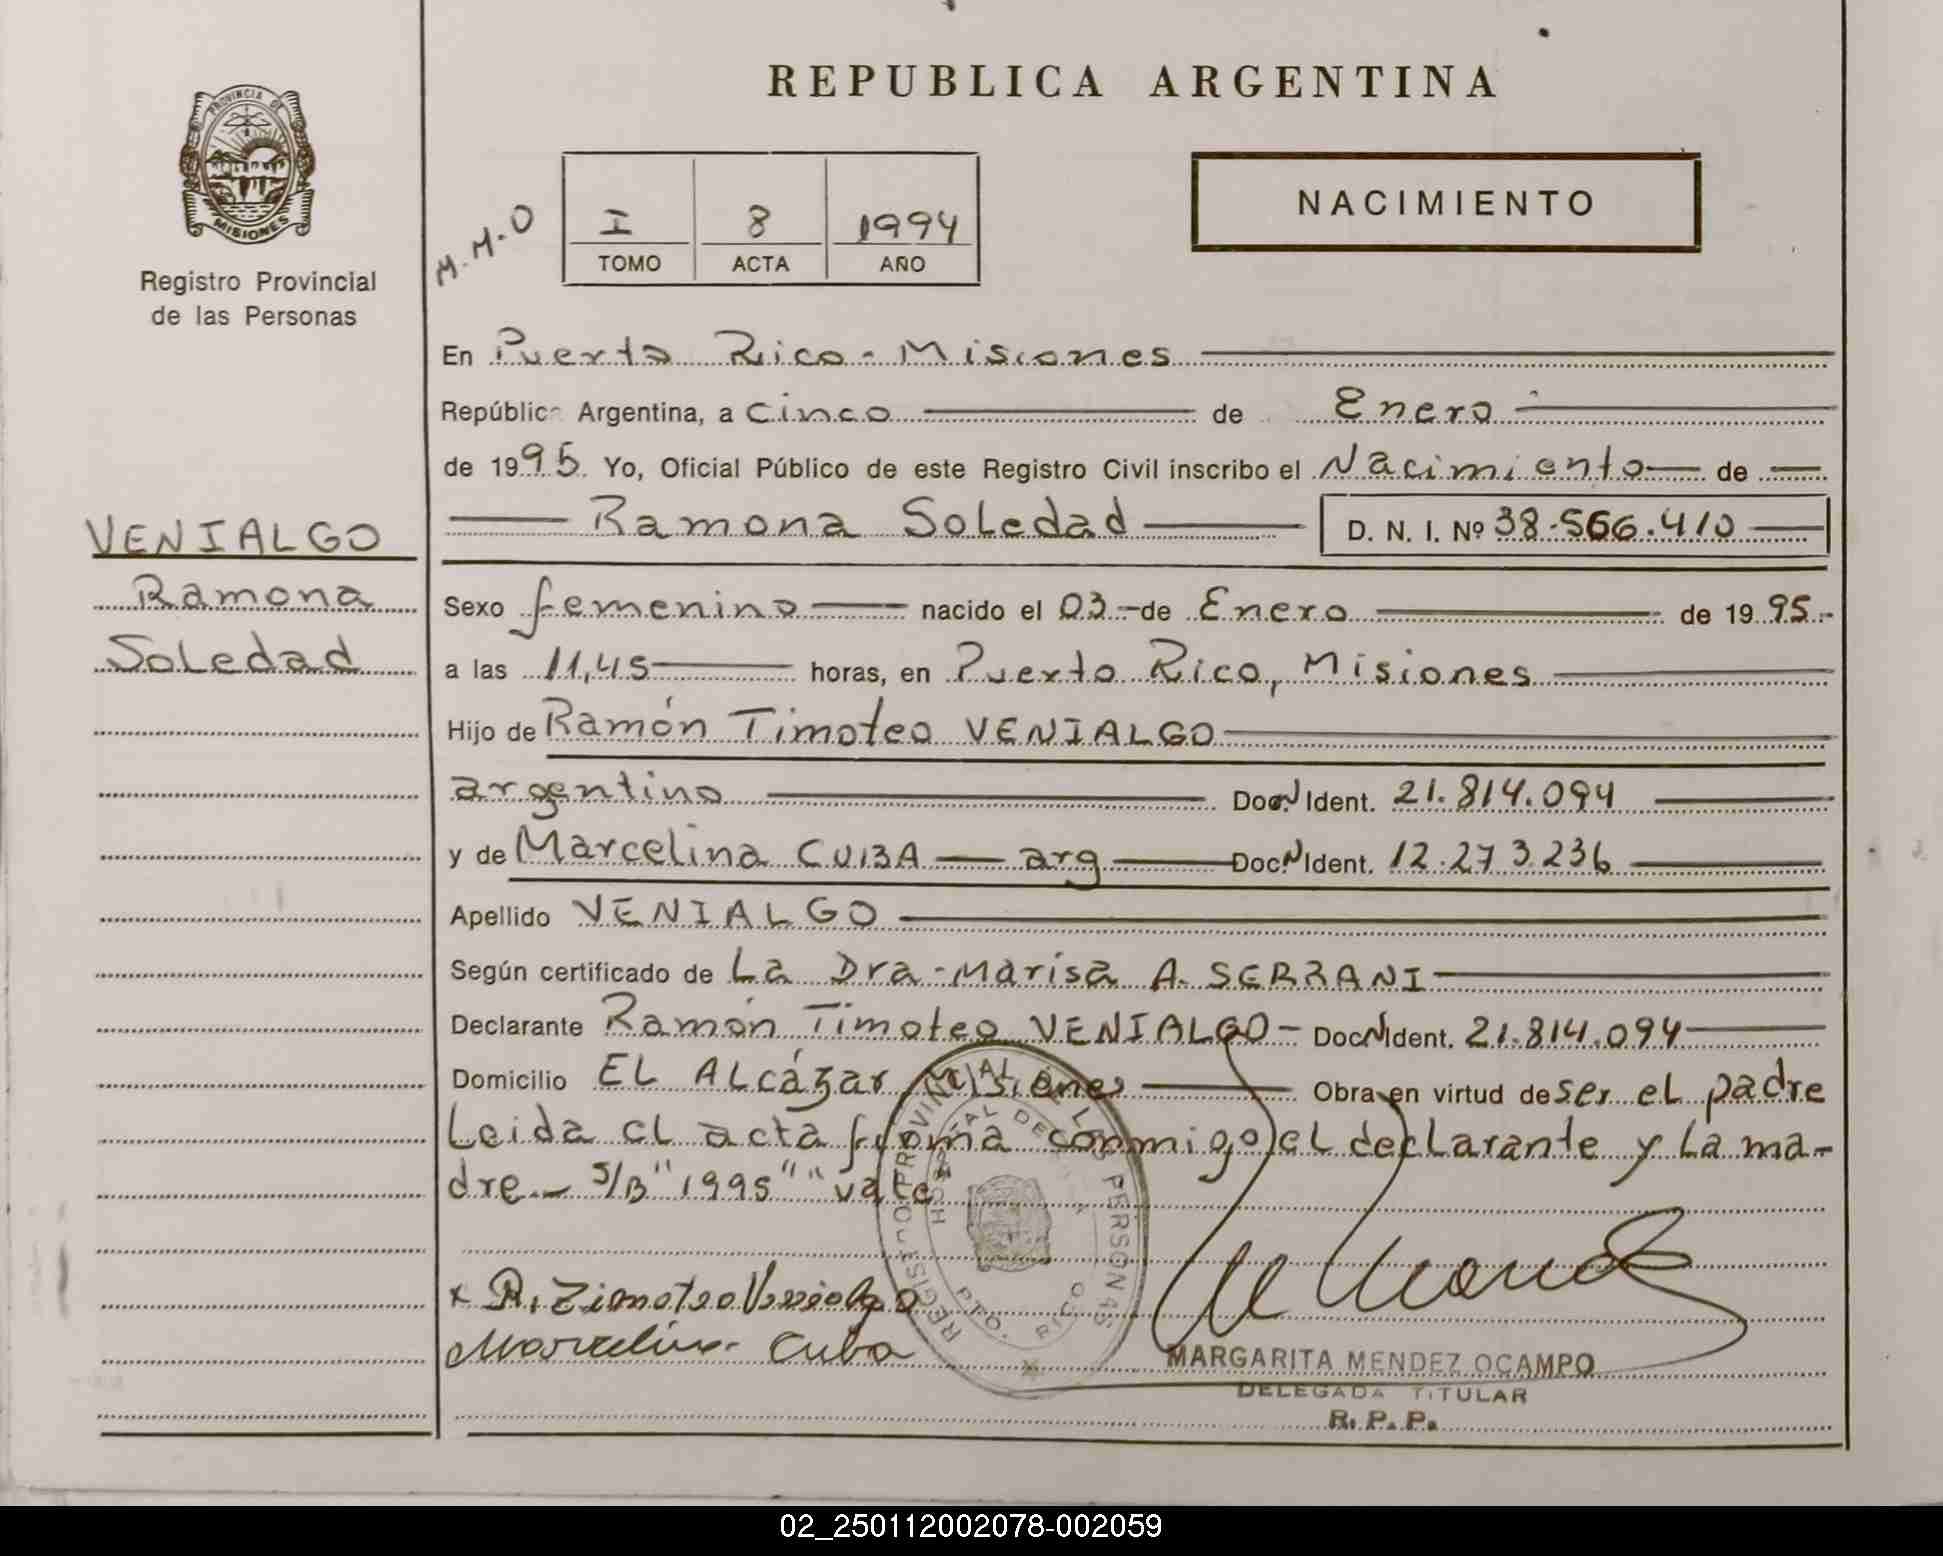 REPUBLICA ARGENTINA
PROVINCIA DE
MISIONES
Registro Provincial
de las Personas
M.M.O
I 8 1994
TOMO ACTA AÑO
NACIMIENTO
En Puerto Rico - Misiones
República Argentina, a cinco de Enero
de 1995. Yo, Oficial Público de este Registro Civil inscribo el Nacimiento de
Ramona Soledad D. N. I. Nº 38.566.410
VENIALGO
Ramona
Soledad
Sexo femenino nacido el 03 - de Enero de 1995.-
a las 11,45 horas, en Puerto Rico, Misiones
Hijo de Ramón Timoteo VENIALGO
argentino Doc. N Ident. 21.814.094
y de Marcelina CUIBA arg Doc. N Ident. 12.273.236
Apellido VENIALGO
Según certificado de La Dra. Marisa A. SERRANI
Declarante Ramón Timoteo VENIALGO - Doc N Ident. 21.814.094
Domicilio EL ALcázar Misiones Obra en virtud de ser el padre
Leida el acta firma conmigo el declarante y La ma-
dre.- S/B "1995" "vale"
REGISTRO PROVINCIAL DE LAS PERSONAS
HOSPITAL DE
PTO. RICO
x R. Timoteo Venialgo
Marcelina Cuba
MARGARITA MENDEZ OCAMPO
DELEGADA TITULAR
R. P. P.
02_250112002078-002059